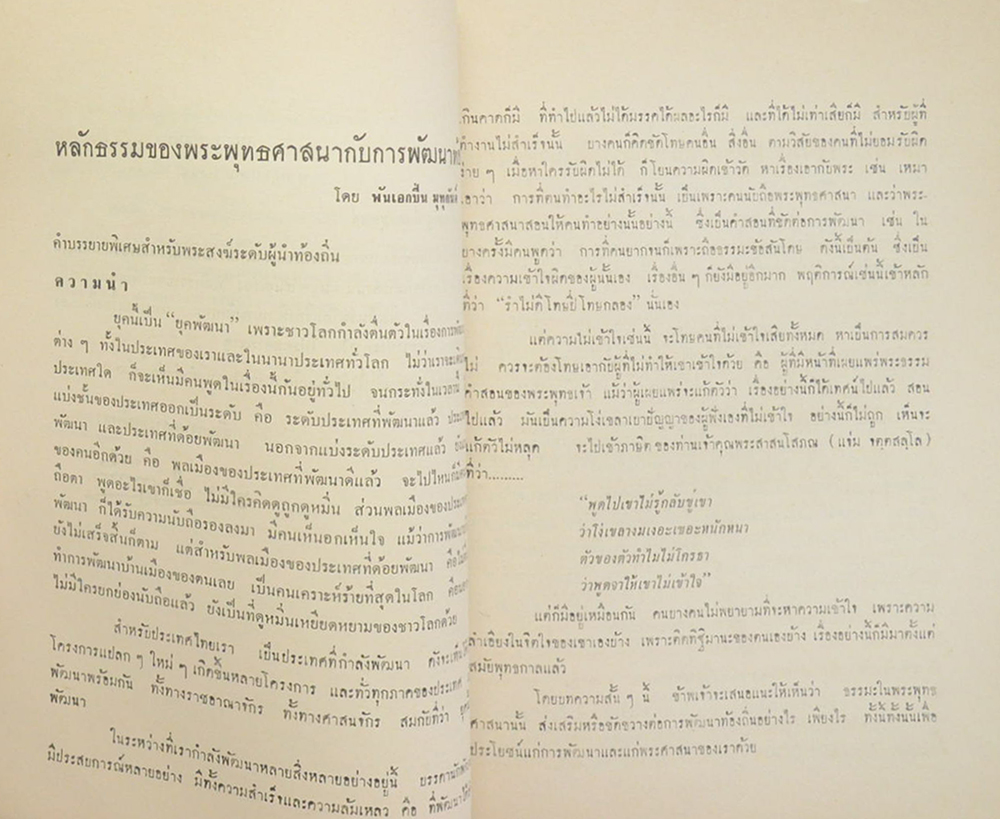 หลักธรรมของพระพุทธศาสนากับการพัฒนา
โดย พันเอกปิ่น มุทุกันต์
คำบรรยายพิเศษสำหรับพระสงฆ์ระดับผู้นำท้องถิ่น
ความนำ
ยุคนี้เป็น “ยุคพัฒนา” เพราะชาวโลกกำลังตื่นตัวในเรื่องการ
ต่าง ๆ ทั้งในประเทศของเราและในนานาประเทศทั่วโลก ไม่ว่าเราจะ
ประเทศใด ก็จะเห็นมีคนพูดในเรื่องนี้กันอยู่ทั่วไป จนกระทั่งใน
แบ่งชั้นของประเทศออกเป็นระดับ คือ ระดับประเทศที่พัฒนาแล้ว
พัฒนา และประเทศที่ด้อยพัฒนา นอกจากแบ่งระดับประเทศแล้ว
ของคนอีกด้วย คือ พลเมืองของประเทศที่พัฒนาดีแล้ว จะไปไหน
ถือตา พูดอะไรเขาก็เชื่อ ไม่มีใครคิดดูถูกดูหมิ่น ส่วนพลเมืองของ
พัฒนา ก็ได้รับความนับถือรองลงมา มีคนเห็นอกเห็นใจ แม้ว่าการพัฒนา
ยังไม่เสร็จสิ้นก็ตาม แต่สำหรับพลเมืองของประเทศที่ด้อยพัฒนา คือ
ทำการพัฒนาบ้านเมืองของตนเลย เป็นคนเคราะห์ร้ายที่สุดในโลก คือ
ไม่มีใครยกย่องนับถือแล้ว ยังเป็นที่ดูหมิ่นเหยียดหยามของชาวโลกด้วย
สำหรับประเทศไทยเรา เป็นประเทศที่กำลังพัฒนา ดังจะเห็น
โครงการแปลก ๆ ใหม่ ๆ เกิดขึ้นหลายโครงการ และทั่วทุกภาคของประเทศ
พัฒนาพร้อมกัน ทั้งทางราชอาณาจักร ทั้งทางศาสนจักร สมกับที่ว่า ยุค
พัฒนา
ในระหว่างที่เรากำลังพัฒนาหลายสิ่งหลายอย่างอยู่นี้ บรรดา
มีประสบการณ์หลายอย่าง มีทั้งความสำเร็จและความล้มเหลว คือ ที่พัฒนา
เกินคาดก็มี ที่ทำไปแล้วไม่ได้มรรคได้ผลอะไรก็มี และที่ได้ไม่เท่าเสียก็มี สำหรับผู้ที่
ทำงานไม่สำเร็จนั้น บางคนก็คิดซัดโทษคนอื่น สิ่งอื่น ตามวิสัยของคนที่ไม่ยอมรับผิด
ง่าย ๆ เมื่อหาใครรับผิดไม่ได้ ก็โยนความผิดเข้าวัด หาเรื่องเอากับพระ เช่น เหมา
เอาว่า การที่คนทำอะไรไม่สำเร็จนั้น เป็นเพราะคนนับถือพระพุทธศาสนา และว่าพระ-
พุทธศาสนาสอนให้คนทำอย่างนั้นอย่างนี้ ซึ่งเป็นคำสอนที่ขัดต่อการพัฒนา เช่น ใน
บางครั้งมีคนพูดว่า การที่คนยากจนก็เพราะถือธรรมะข้อสันโดษ ดังนี้เป็นต้น ซึ่งเป็น
เรื่องความเข้าใจผิดของผู้นั้นเอง เรื่องอื่น ๆ ก็ยังมีอยู่อีกมาก พฤติการณ์เช่นนี้เข้าหลัก
ที่ว่า “รำไม่ดีโทษปี่โทษกลอง” นั่นเอง
แต่ความไม่เข้าใจเช่นนี้ จะโทษคนที่ไม่เข้าใจเสียทั้งหมด หาเป็นการสมควร
ไม่ ควรจะต้องโทษเอากับผู้ที่ไม่ทำให้เขาเข้าใจด้วย คือ ผู้ที่มีหน้าที่เผยแพร่พระธรรม
คำสอนของพระพุทธเจ้า แม้ว่าผู้เผยแพร่จะแก้ตัวว่า เรื่องอย่างนี้ก็ได้เทศน์ไปแล้ว สอน
ไปแล้ว มันเป็นความโง่เขลาเบาปัญญาของผู้ฟังเองที่ไม่เข้าใจ อย่างนี้ก็ไม่ถูก เห็นจะ
แก้ตัวไม่หลุด จะไปเข้าภาษิตของท่านเจ้าคุณพระศาสนโสภณ (แจ่ม จตฺตสลฺโล)
ที่ว่า.........
“พูดไปเขาไม่รู้กลับขู่เขา
ว่าโง่เขลางมเงอะเซอะหนักหนา
ตัวของตัวทำไมไม่โกรธา
ว่าพูดจาให้เขาไม่เข้าใจ”
แต่ก็มีอยู่เหมือนกัน คนบางคนไม่พยายามที่จะหาความเข้าใจ เพราะความ
ลำเอียงในจิตใจของเขาเองบ้าง เพราะติดทิฐิมานะของตนเองบ้าง เรื่องอย่างนี้ก็มีมาตั้งแต่
สมัยพุทธกาลแล้ว
โดยบทความสั้น ๆ นี้ ข้าพเจ้าจะเสนอแนะให้เห็นว่า ธรรมะในพระพุทธ
ศาสนานั้น ส่งเสริมหรือขัดขวางต่อการพัฒนาท้องถิ่นอย่างไร เพียงไร ทั้งนี้ทั้งนั้นเพื่อ
ประโยชน์แก่การพัฒนาและแก่พระศาสนาของเราด้วย